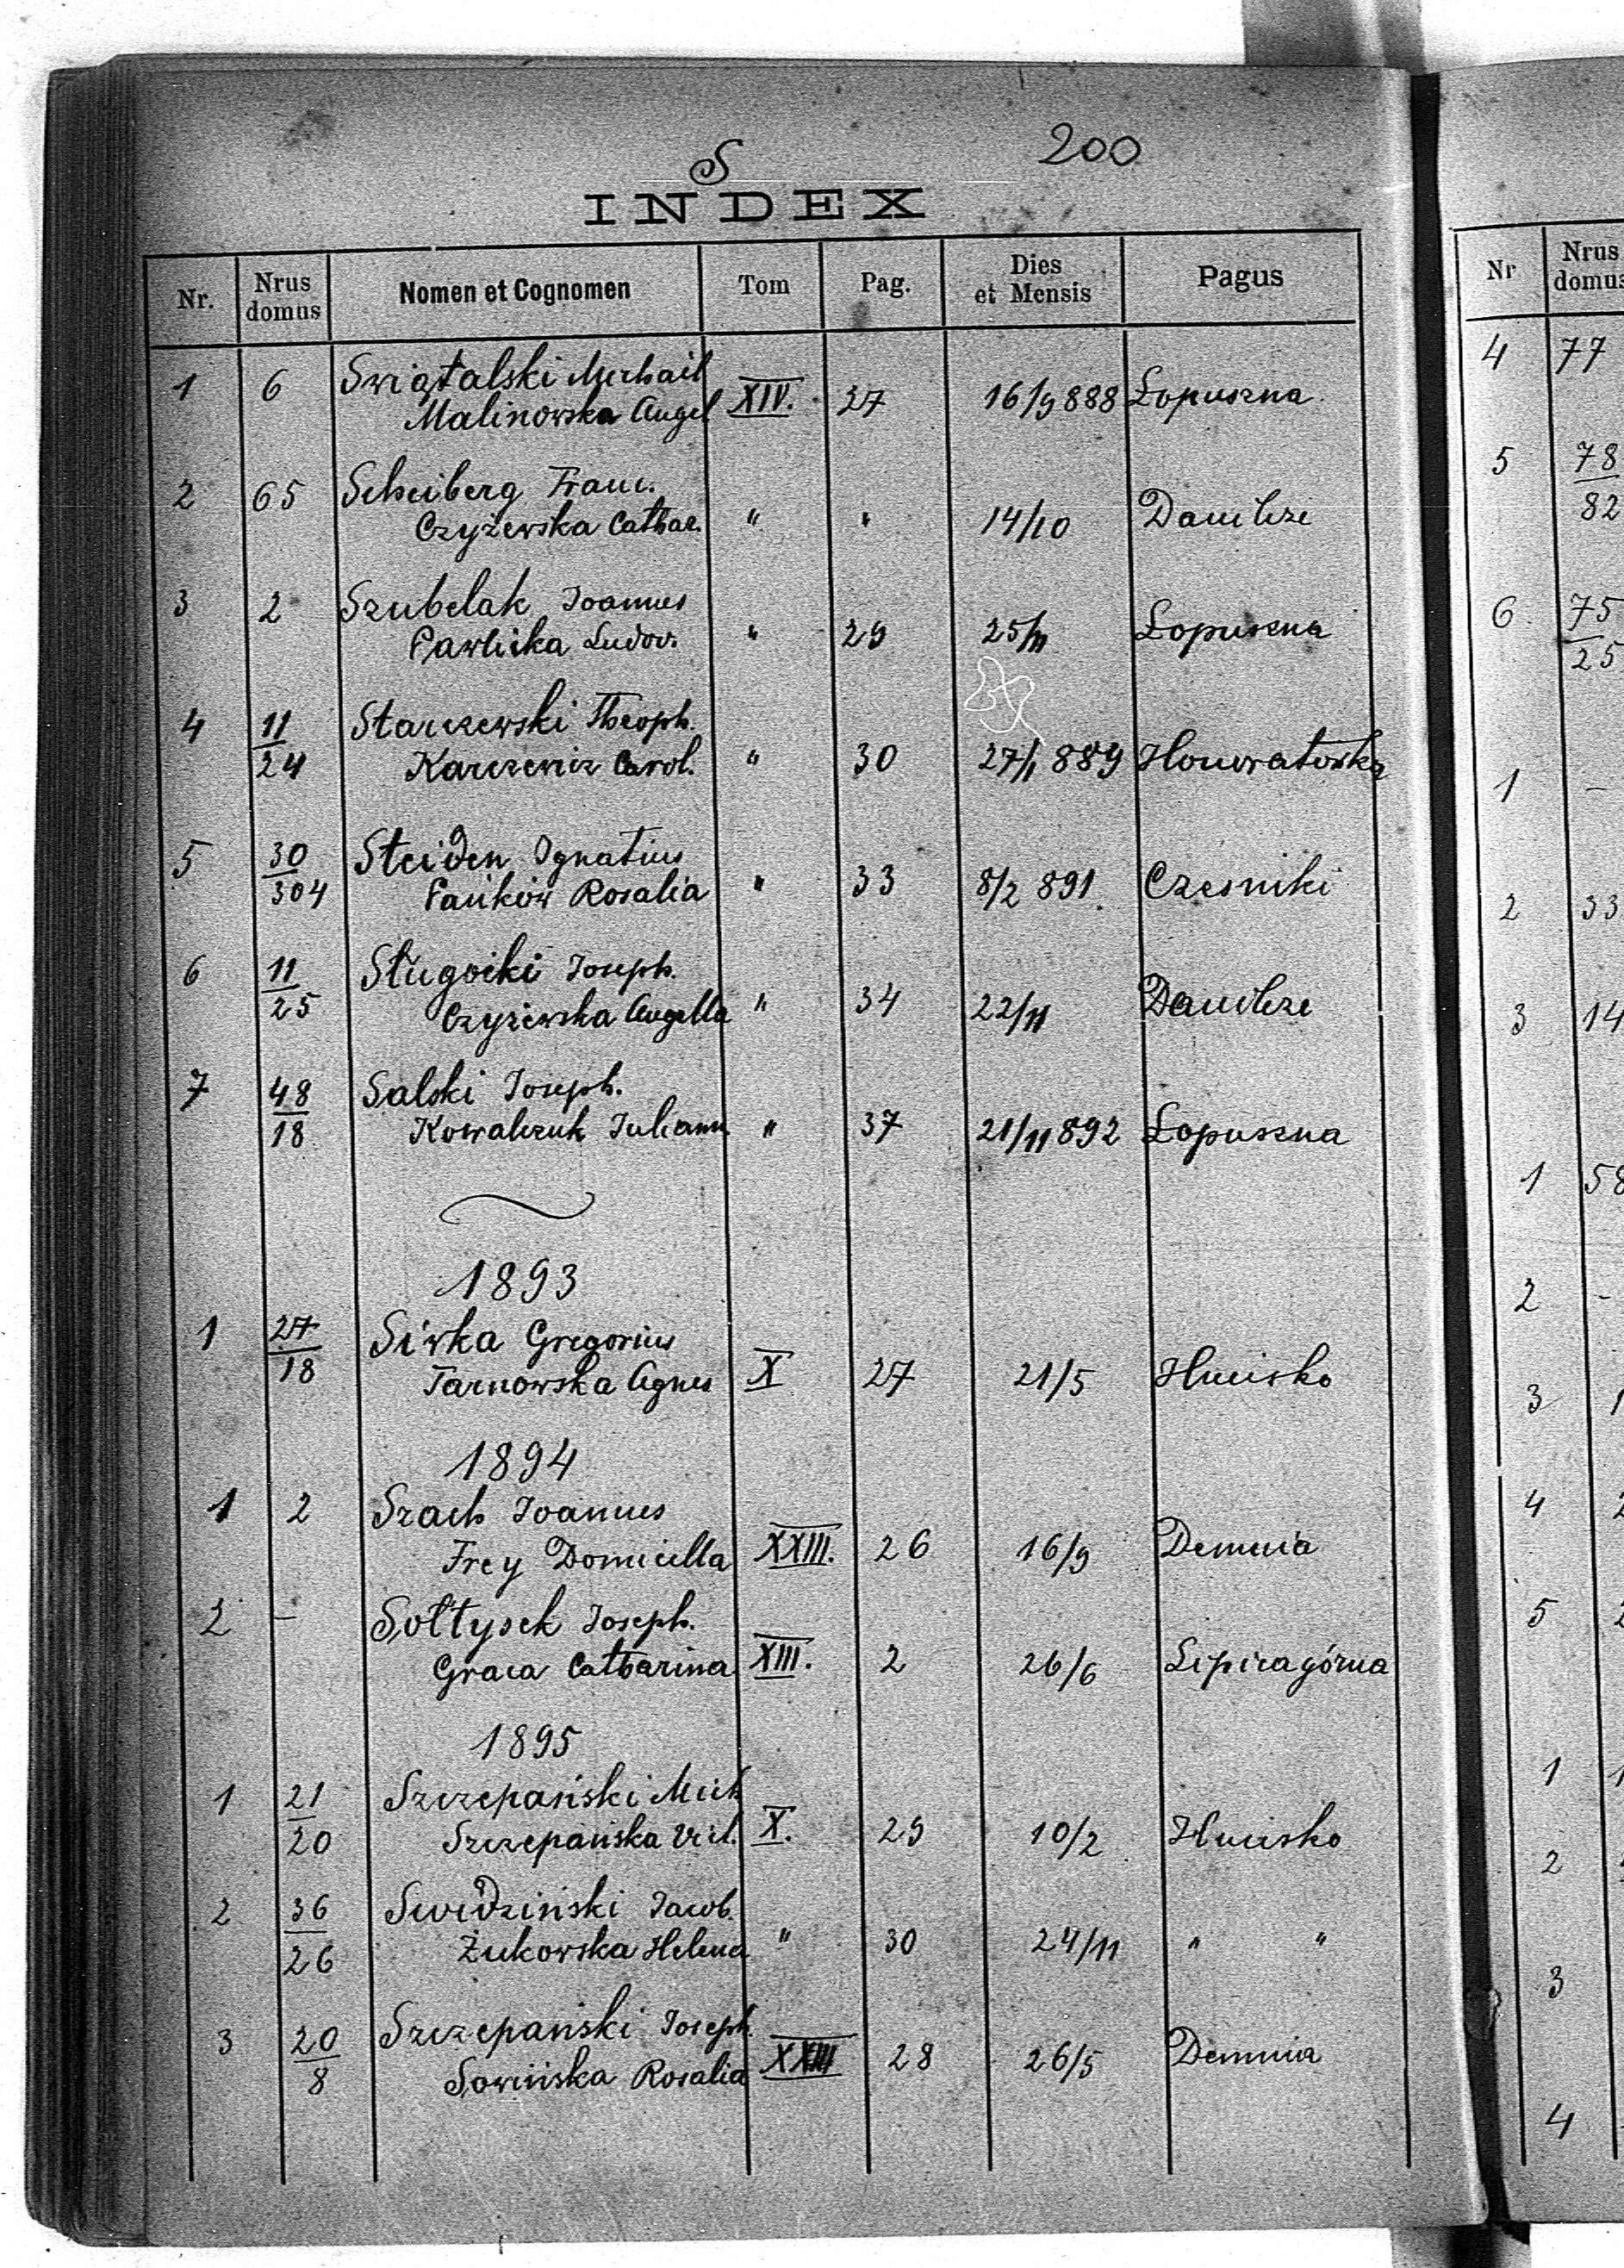 S 200
INDEX
Nr. Nrus domus Nomen et Cognomen Tom Pag. Dies et Mensis Pagus
1 6 Swiątalski Michail
Malinowska Angel XIV. 27 16/9 888 Łopuszna
2 65 Scheiberg Franc.
Czyżewska Cathar. " " 14/10 Danilcze
3 2 Szubelak Joannes
Pawlicka Ludov. " 29 25/11 Łopuszna
4 11/24 Starczewski Theoph.
Karczewicz Carol. " 30 27/1 889 Honoratówka
5 30/304 Steiden Ignatius
Pańków Rosalia " 33 8/2 891. Czesniki
6 11/25 Sługocki Joseph.
Czyżewska Angella " 34 22/11 Danilcze
7 48/18 Salski Joseph.
Kowalczuk Julianna " 37 21/11 892 Łopuszna
1893
1 27/18 Siwka Gregorius
Tarnowska Agnes X 27 21/5 Hucisko
1894
1 2 Szach Joannes
Frey Domicella XXIII. 26 16/9 Demnia
2 – Sołtysek Joseph.
Graca Catharina XIII. 2 26/6 Lipicagórna
1895
1 21/20 Szczepański Mich
Szczepańska Vict. X. 29 10/2 Hucisko
2 36/26 Swidziński Jacob.
Żukowska Helena " 30 24/11 " "
3 20/8 Szczepański Joseph.
Sowińska Rosalia XXIII 28 26/5 Demnia
Nr Nrus domus
4 77
5 78
82
6 75
25
1 –
2 33
3 14
1 58
2 -
3 1
4 2
5
1 1
2
3
4